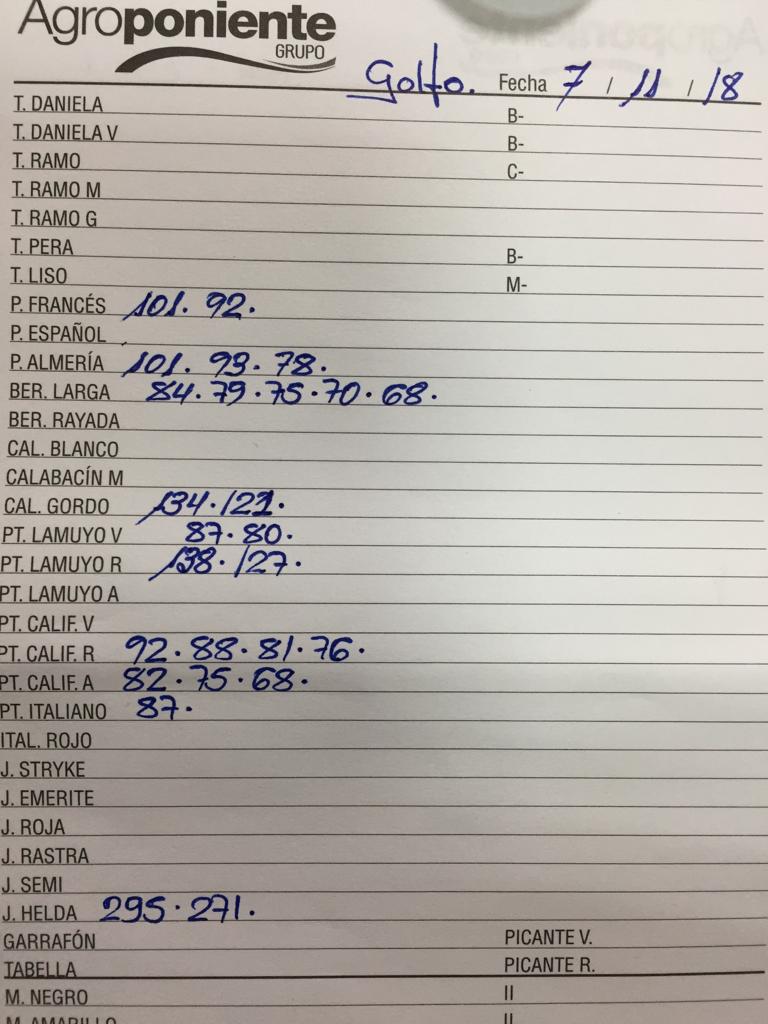 Agroponiente
GRUPO
Golfo. Fecha 7 / 11 / 18
T. DANIELA B-
T. DANIELA V B-
T. RAMO C-
T. RAMO M
T. RAMO G
T. PERA B-
T. LISO M-
P. FRANCÉS 101. 92.
P. ESPAÑOL
P. ALMERÍA 101. 93. 78.
BER. LARGA 84. 79. 75. 70. 68.
BER. RAYADA
CAL. BLANCO
CALABACÍN M
CAL. GORDO 134. 121.
PT. LAMUYO V 87. 80.
PT. LAMUYO R 138. 127.
PT. LAMUYO A
PT. CALIF. V
PT. CALIF. R 92. 88. 81. 76.
PT. CALIF. A 82. 75. 68.
PT. ITALIANO 87.
ITAL. ROJO
J. STRYKE
J. EMERITE
J. ROJA
J. RASTRA
J. SEMI
J. HELDA 295. 271.
GARRAFÓN PICANTE V.
TABELLA PICANTE R.
M. NEGRO II
M. AMARILLO II